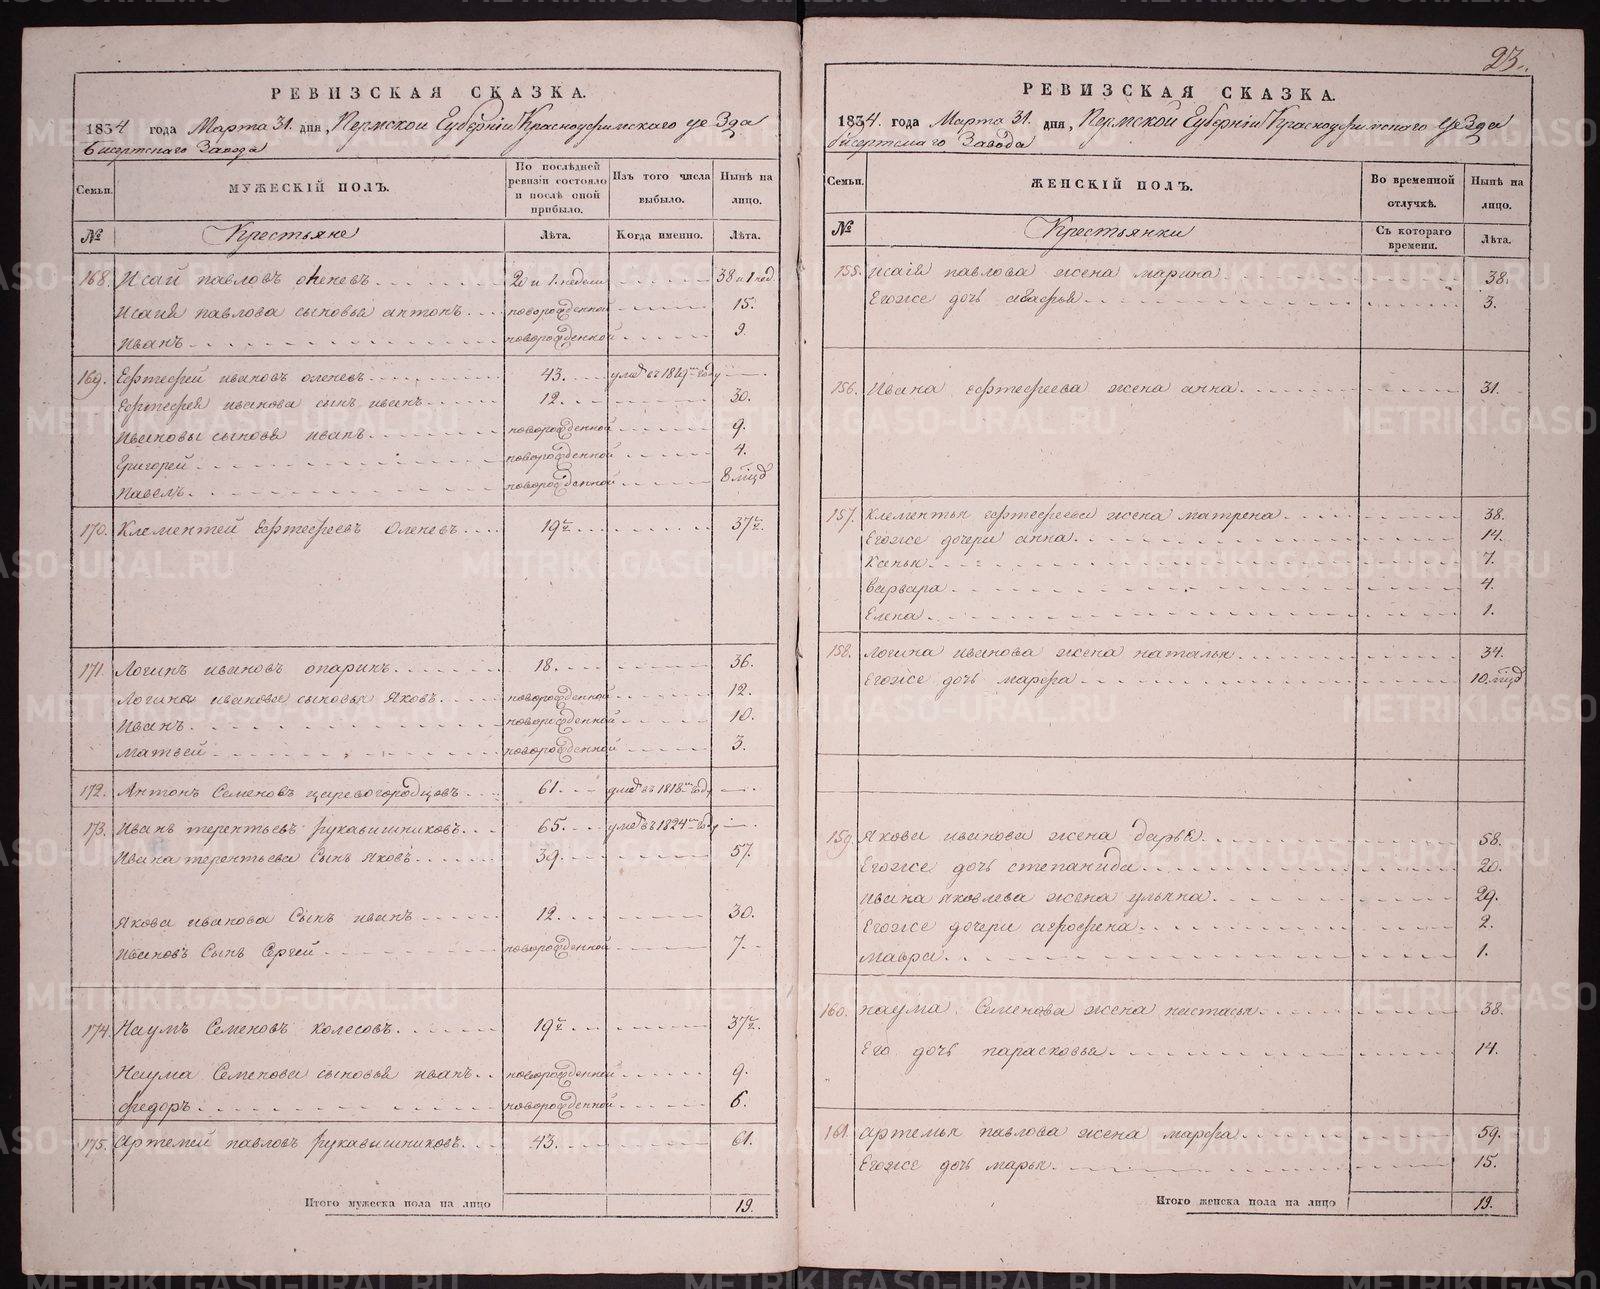 РЕВИЗСКАЯ СКАЗКА.
1834 года Марта 31. дня, Пермской Губернiи Красноуфимскаго уезда
бисертскаго Завода
Семьи.
МУЖЕСКIЙ ПОЛЪ.
По послѣдней ревизiи состояло и послѣ оной прибыло.
Изъ того числа выбыло.
Нынѣ на лицо.
№
Крестьяне
Лѣта.
Когда именно.
Лѣта.
168. Исай павловъ оленевъ 20 и 1. недели 38 и 1 нед.
Исаiя павлова сыновья антонъ новорожденной 15.
Иванъ новорожденной 9
169. Ефтефей ивановъ оленевъ 43. умеръ въ 1829м году
Ефтефея иванова сынъ иванъ 12. 30.
Ивановы сыновья иванъ новорожденной 9.
Григорей новорожденной 4.
Павелъ новорожденной 8 мцов
170. Клементей Ефтефеевъ Оленевъ 19½ 37½.
171. Логинъ ивановъ опаринъ 18. 36.
Логина иванова сыновья Яковъ новорожденной 12.
Иванъ новорожденной 10.
Матвей новорожденной 3.
172. Антонъ Семеновъ царевогородцовъ 61. умеръ въ 1818м году
173. Иванъ терентьевъ рукавишниковъ 65. умеръ въ 1824м году
Ивана терентьева Сынъ яковъ 39. 57.
Якова иванова Сынъ иванъ 12. 30.
Ивановъ Сынъ Сергей новорожденной 7.
174. Наумъ Семеновъ колесовъ 19½ 37½.
Наума Семенова сыновья иванъ новорожденной 9.
федоръ новорожденной 6.
175. Артемей павловъ рукавишниковъ 43. 61.
Итого мужеска пола на лицо 19.
23.
РЕВИЗСКАЯ СКАЗКА.
1834. года Марта 31. дня, Пермской Губернiи Красноуфимскаго Уезда
бисертскаго Завода
Семьи.
ЖЕНСКIЙ ПОЛЪ.
Во временной отлучкѣ.
Нынѣ на лицо.
№
Крестьянки
Съ котораго времени.
Лѣта.
155. Исаiя павлова жена марина 38.
Егоже дочь агафья 3.
156. Ивана ефтефеева жена анна 31.
157. Клементья ефтефеева жена матрена 38.
Егоже дочери анна 14.
Ксенья 7.
варвара 4.
Елена 1.
158. Логина иванова жена наталья 34.
Егоже дочь марфа 10. мцов
159. Якова иванова жена дарья 58.
Егоже дочь степанида 20.
Ивана яковлева жена ульяна 29.
Егоже дочери афрофена 2.
мавра 1.
160. наума Семенова жена настасья 38.
Его дочь парасковья 14.
161. артемья павлова жена марфа 59.
Егоже дочь марья 15.
Итого женска пола на лицо 19.
METRIKI.GASO-URAL.RU